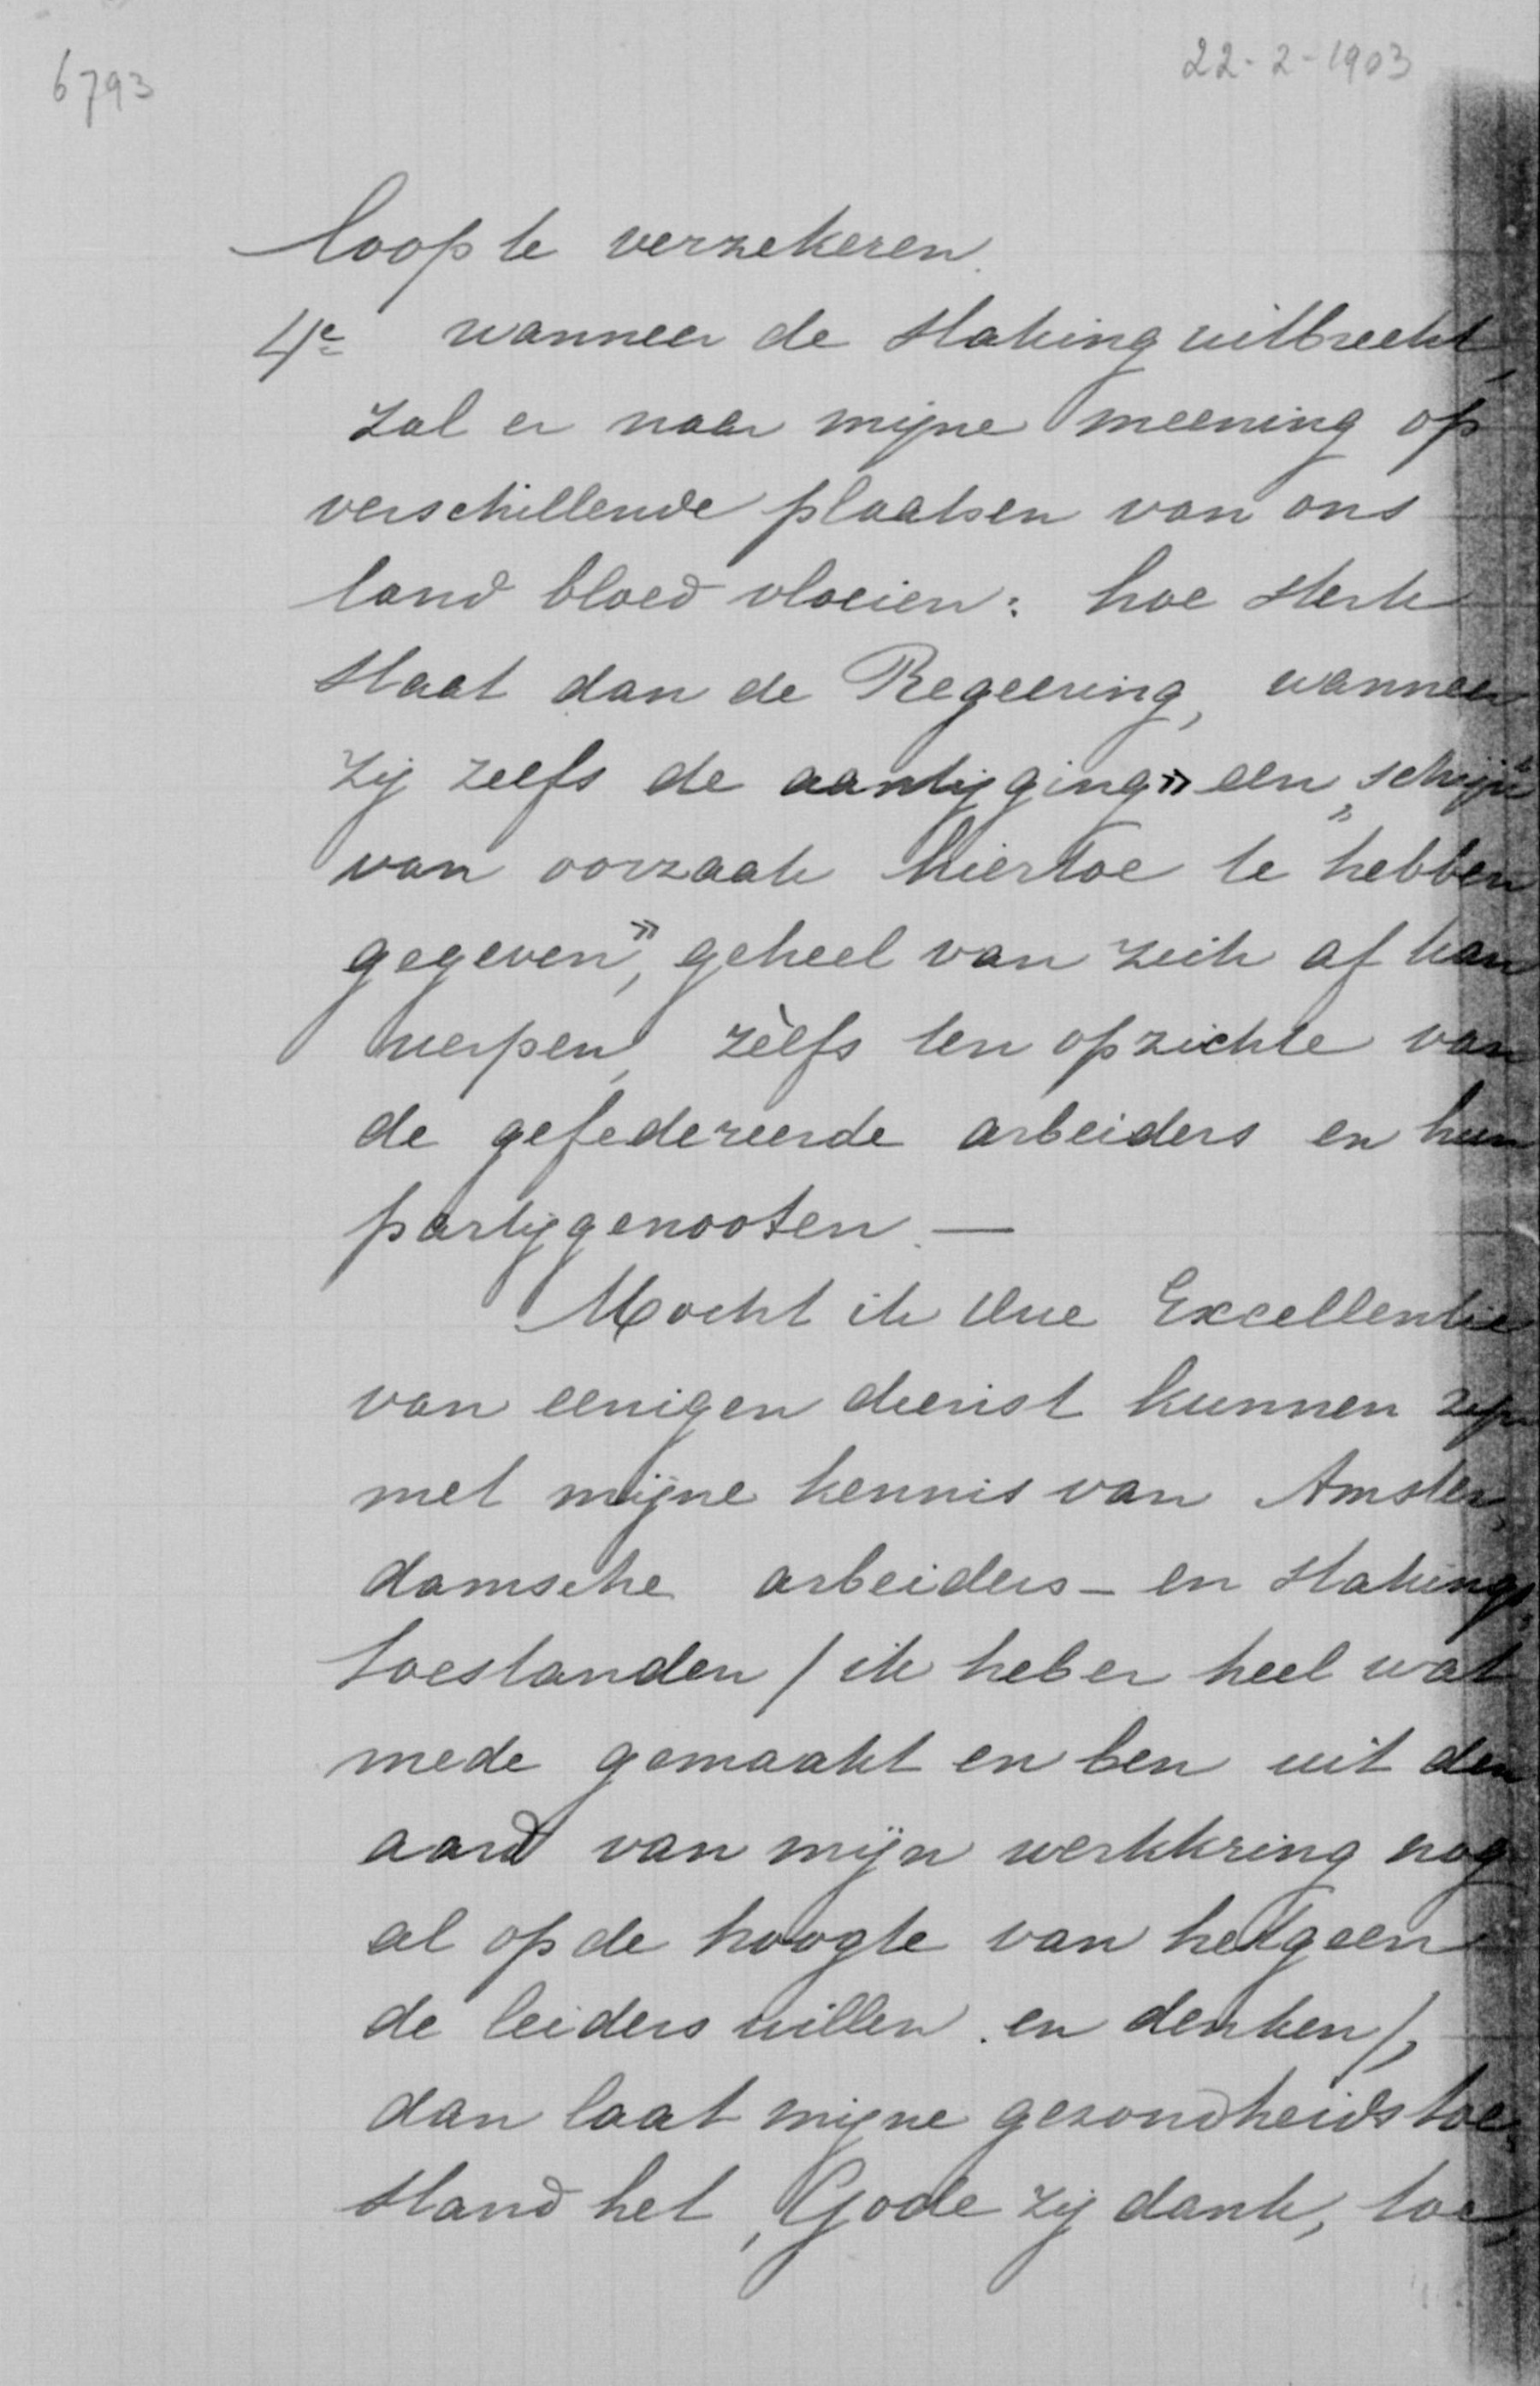 6793
22-2-1903
loop te verzekeren.
4e wanneer de staking uitbreekt,
zal er naar mijne meening op
verschillende plaatsen van ons
land bloed vloeien: hoe sterk
staat dan de Regeering, wanneer
zij zelfs de aantijging » een „schijn"
van oorzaak hiertoe te hebben
gegeven", geheel van zich af kan
werpen, zèlfs ten opzichte van
de gefedereerde arbeiders en hun
partijgenooten. —
Mocht ik Uwe Excellentie
van eenigen dienst kunnen zijn
met mijne kennis van Amster„
damsche arbeiders- en stakings„
toestanden / ik heb er heel wat
mede gemaakt en ben uit den
aard van mijn werkkring nog
al op de hoogte van hetgeen
de leiders willen en denken /,
dan laat mijne gezondheids toe„
stand het, Gode zij dank, toe,